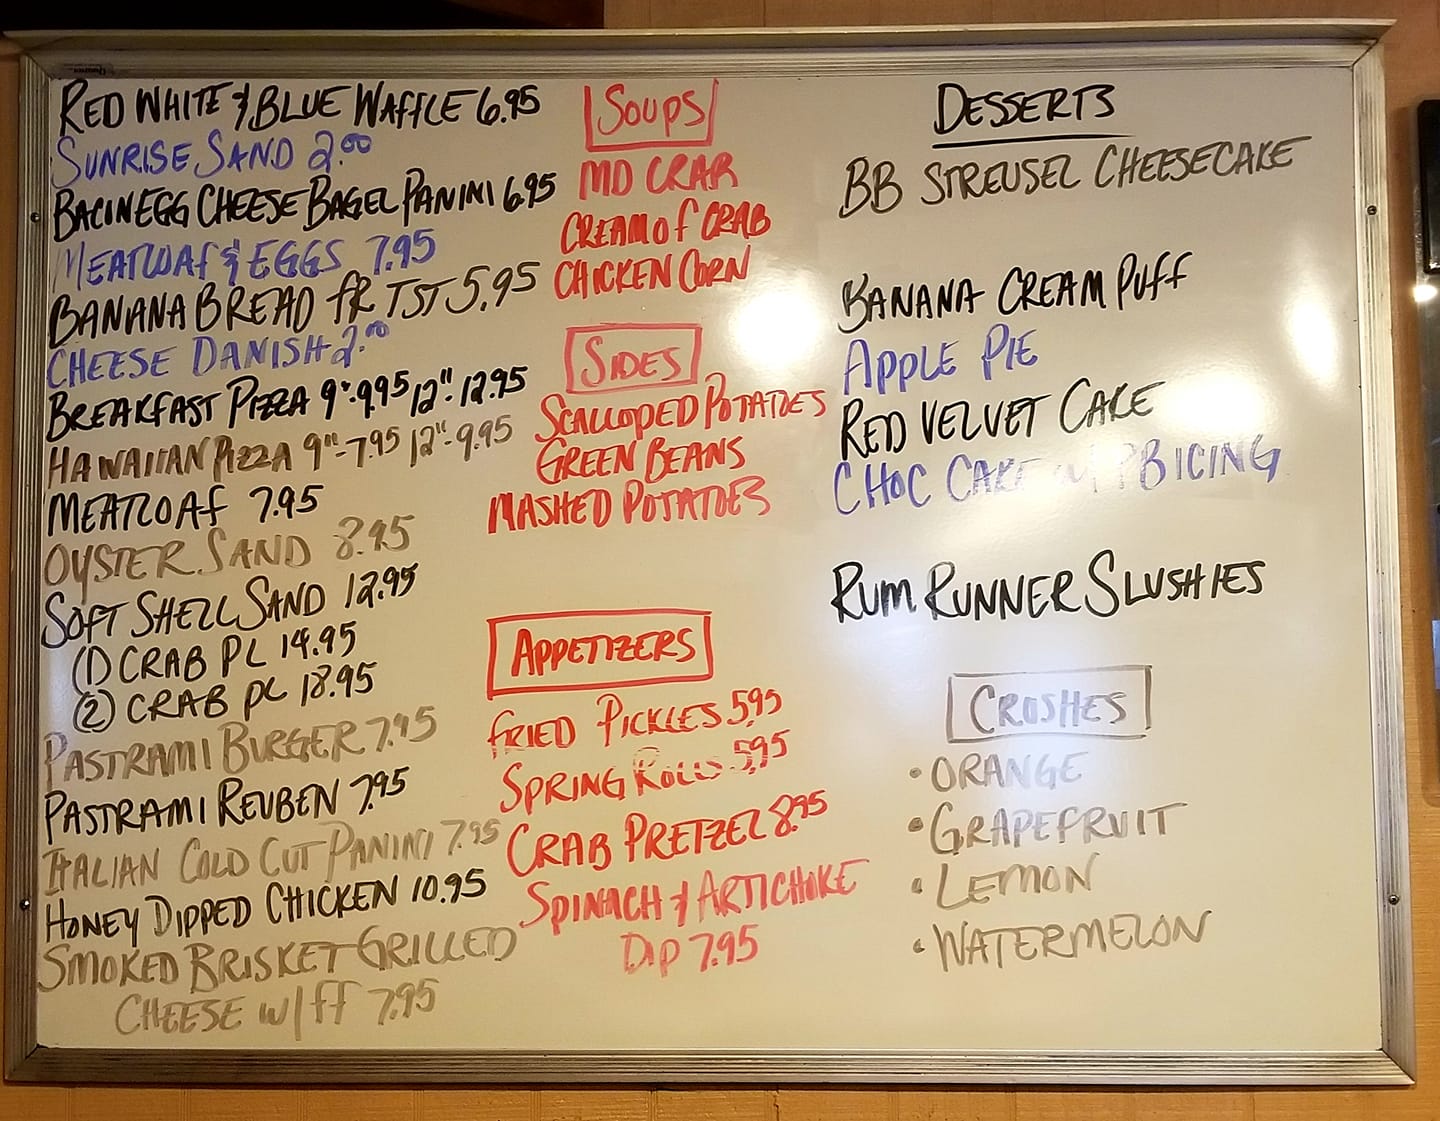 RED WHITE & BLUE WAFFLE 6.95
SUNRISE SAND 2.00
BACINEGG CHEESE BAGEL PANINI 6.95
MEATLOAF & EGGS 7.95
BANANA BREAD FR TST 5.95
CHEESE DANISH 2.00
BREAKFAST PIZZA 9"-9.95 12"-12.95
HAWAIIAN PIZZA 9"-7.95 12"-9.95
MEATLOAF 7.95
OYSTER SAND 8.95
SOFT SHELL SAND 12.95
(1) CRAB PL 14.95
(2) CRAB PL 18.95
PASTRAMI BURGER 7.95
PASTRAMI REUBEN 7.95
ITALIAN COLD CUT PANINI 7.95
HONEY DIPPED CHICKEN 10.95
SMOKED BRISKET GRILLED
CHEESE W/FF 7.95
SOUPS
MD CRAB
CREAM OF CRAB
CHICKEN CORN
SIDES
SCALLOPED POTATOES
GREEN BEANS
MASHED POTATOES
APPETIZERS
FRIED PICKLES 5.95
SPRING ROLLS 5.95
CRAB PRETZEL 8.95
SPINACH & ARTICHOKE
DIP 7.95
DESSERTS
BB STREUSEL CHEESECAKE
BANANA CREAM PUFF
APPLE PIE
RED VELVET CAKE
CHOC CAKE W/ PB ICING
RUM RUNNER SLUSHIES
CRUSHES
• ORANGE
• GRAPEFRUIT
• LEMON
• WATERMELON